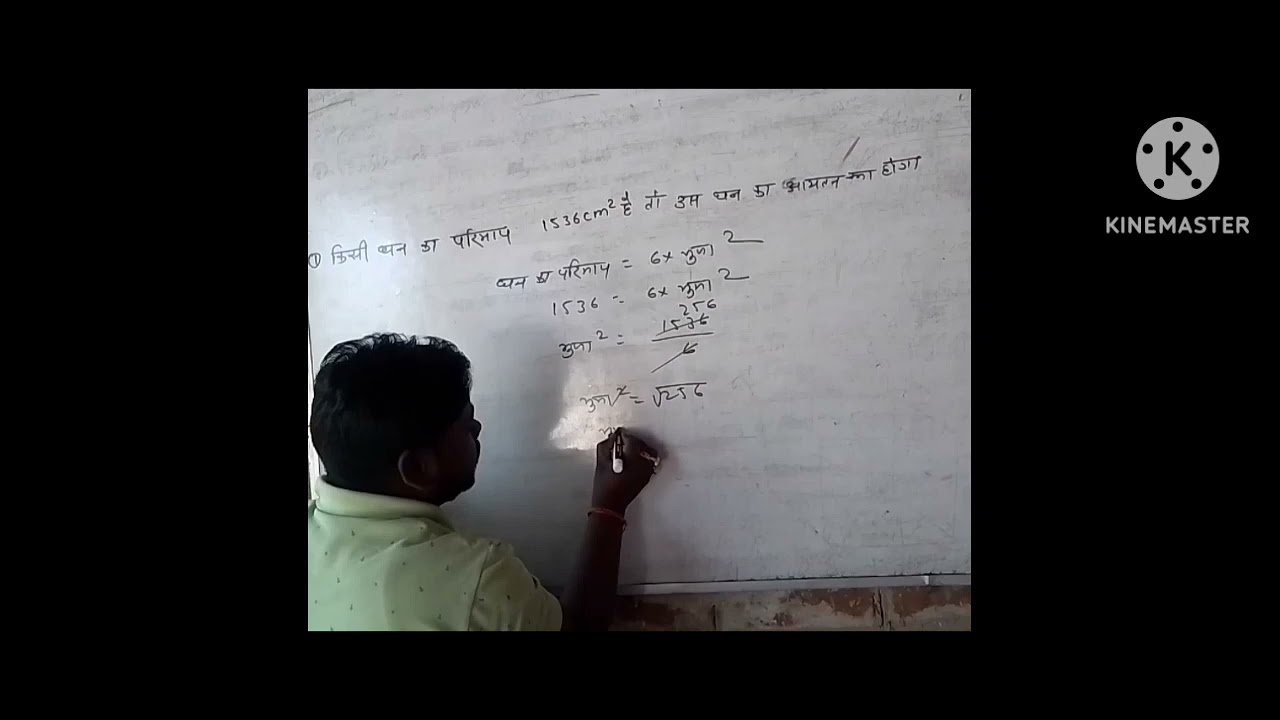 ① किसी घन का परिमाप 1536cm² है तो उस घन का आयतन क्या होगा
घन का परिमाप = 6× भुजा 2
1536 = 6× भुजा 2
256
भुजा ² = 1536
6
भुजा ² = √256
K
KINEMASTER